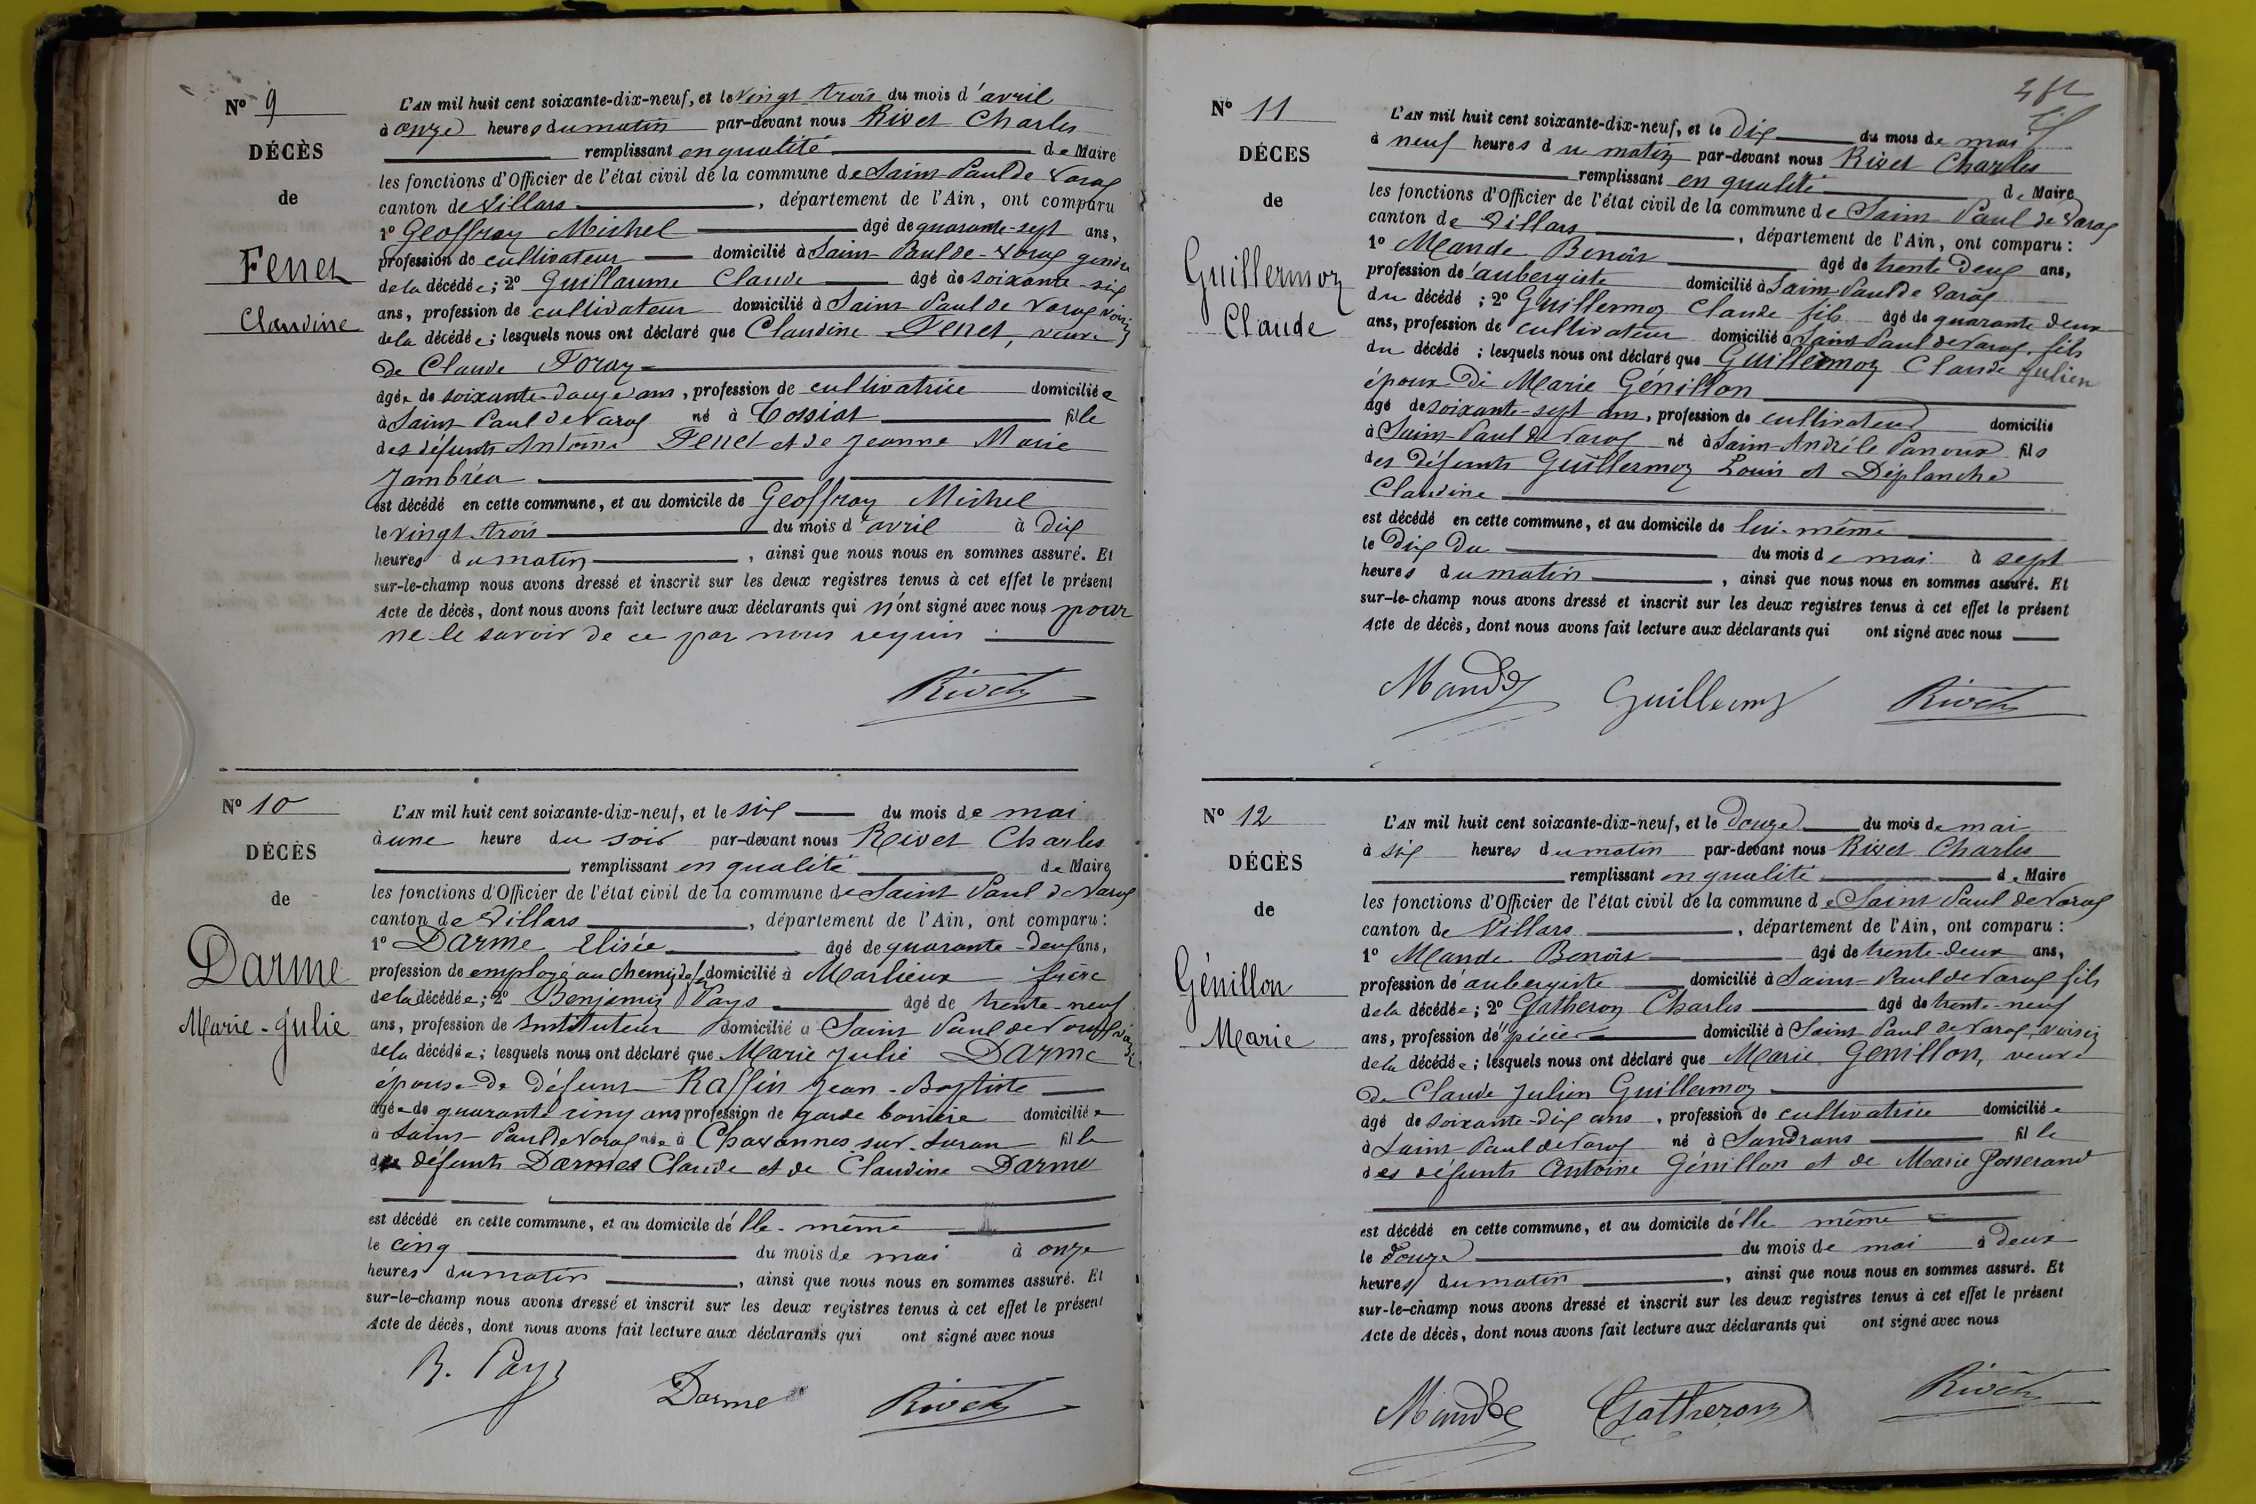 N° 9
DÉCÈS
de
Fenet
Claudine
L'AN mil huit cent soixante-dix-neuf, et le vingt trois du mois d'avril
à onze heures du matin par-devant nous Rivet Charles
remplissant en qualité de Maire
les fonctions d'Officier de l'état civil de la commune de Saint Paul de Varax
canton de Villars, département de l'Ain, ont comparu
1° Geoffray Michel âgé de quarante-sept ans,
profession de cultivateur domicilié à Saint-Paul de-Varax gendre
de la décédée; 2° Guillaume Claude âgé de soixante-six
ans, profession de cultivateur domicilié à Saint Paul de Varax voisin
de la décédée; lesquels nous ont déclaré que Claudine Fenet, veuve
de Claude Foray
âgée de soixante-douze ans, profession de cultivatrice domiciliée
à Saint Paul de Varax né à Cossiat fille
des défunts Antoine Fenet et de Jeanne Marie
Jambréa
est décédé en cette commune, et au domicile de Geoffray Michel
le vingt-trois du mois d'avril à dix
heures du matin, ainsi que nous nous en sommes assuré. Et
sur-le-champ nous avons dressé et inscrit sur les deux registres tenus à cet effet le présent
Acte de décès, dont nous avons fait lecture aux déclarants qui n'ont signé avec nous pour
ne le savoir de ce par nous requis.
Rivet
N° 10
DÉCÈS
de
Darme
Marie-Julie
L'AN mil huit cent soixante-dix-neuf, et le six du mois de mai
à une heure du soir par-devant nous Rivet Charles
remplissant en qualité de Maire
les fonctions d'Officier de l'état civil de la commune de Saint Paul de Varax
canton de Villars, département de l'Ain, ont comparu:
1° Darme Elisée âgé de quarante-deux ans,
profession de employé au chemin de fer domicilié à Marlieux frère
de la décédée; 2° Benjamin Pays âgé de trente-neuf
ans, profession de Instituteur domicilié à Saint Paul de Varax voisin
de la décédée; lesquels nous ont déclaré que Marie Julie Darme
épouse de défunt Raffin Jean-Baptiste
âgée de quarante cinq ans profession de garde barrière domiciliée
à Saint-Paul de Varax née à Chavannes sur Suran fille
des défunts Darmes Claude et de Claudine Darme
est décédé en cette commune, et au domicile d'elle-même
le cinq du mois de mai à onze
heures du matin, ainsi que nous nous en sommes assuré. Et
sur-le-champ nous avons dressé et inscrit sur les deux registres tenus à cet effet le présent
Acte de décès, dont nous avons fait lecture aux déclarants qui ont signé avec nous
B. Pays
Darme
Rivet
N° 11
DÉCÈS
de
Guillermoz
Claude
L'AN mil huit cent soixante-dix-neuf, et le dix du mois de mai
à neuf heures du matin par-devant nous Rivet Charles
remplissant en qualité de Maire
les fonctions d'Officier de l'état civil de la commune de Saint Paul de Varax
canton de Villars, département de l'Ain, ont comparu:
1° Mande Benoît âgé de trente deux ans,
profession de aubergiste domicilié à Saint Paul de Varax
du décédé; 2° Guillermoz Claude fils âgé de quarante deux
ans, profession de cultivateur domicilié à Saint Paul de Varax fils
du décédé; lesquels nous ont déclaré que Guillermoz Claude Julien
époux de Marie Génillon
âgé de soixante-sept ans, profession de cultivateur domicilié
à Saint-Paul de Varax né à Saint-André le Panoux fils
des défunts Guillermoz Louis et Déplanche
Claudine
est décédé en cette commune, et au domicile de lui-même
le dix du du mois de mai à sept
heures du matin, ainsi que nous nous en sommes assuré. Et
sur-le-champ nous avons dressé et inscrit sur les deux registres tenus à cet effet le présent
Acte de décès, dont nous avons fait lecture aux déclarants qui ont signé avec nous
Mande
Guillermoz
Rivet
N° 12
DÉCÈS
de
Génillon
Marie
L'AN mil huit cent soixante-dix-neuf, et le douze du mois de mai
à six heures du matin par-devant nous Rivet Charles
remplissant en qualité de Maire
les fonctions d'Officier de l'état civil de la commune de Saint Paul de Varax
canton de Villars, département de l'Ain, ont comparu:
1° Mande Benoît âgé de trente-deux ans,
profession de aubergiste domicilié à Saint-Paul de Varax fils
de la décédée; 2° Gatheron Charles âgé de trente-neuf
ans, profession d'épicier domicilié à Saint Paul de Varax, voisin
de la décédée; lesquels nous ont déclaré que Marie Genillon, veuve
de Claude Julien Guillermoz
âgé de soixante-dix ans, profession de cultivatrice domiciliée
à Saint-Paul de Varax né à Sandrans fille
des défunts Antoine Génillon et de Marie Josserand
est décédé en cette commune, et au domicile d'elle même
le douze du mois de mai à deux
heures du matin, ainsi que nous nous en sommes assuré. Et
sur-le-champ nous avons dressé et inscrit sur les deux registres tenus à cet effet le présent
Acte de décès, dont nous avons fait lecture aux déclarants qui ont signé avec nous
Mande
Gatheron
Rivet